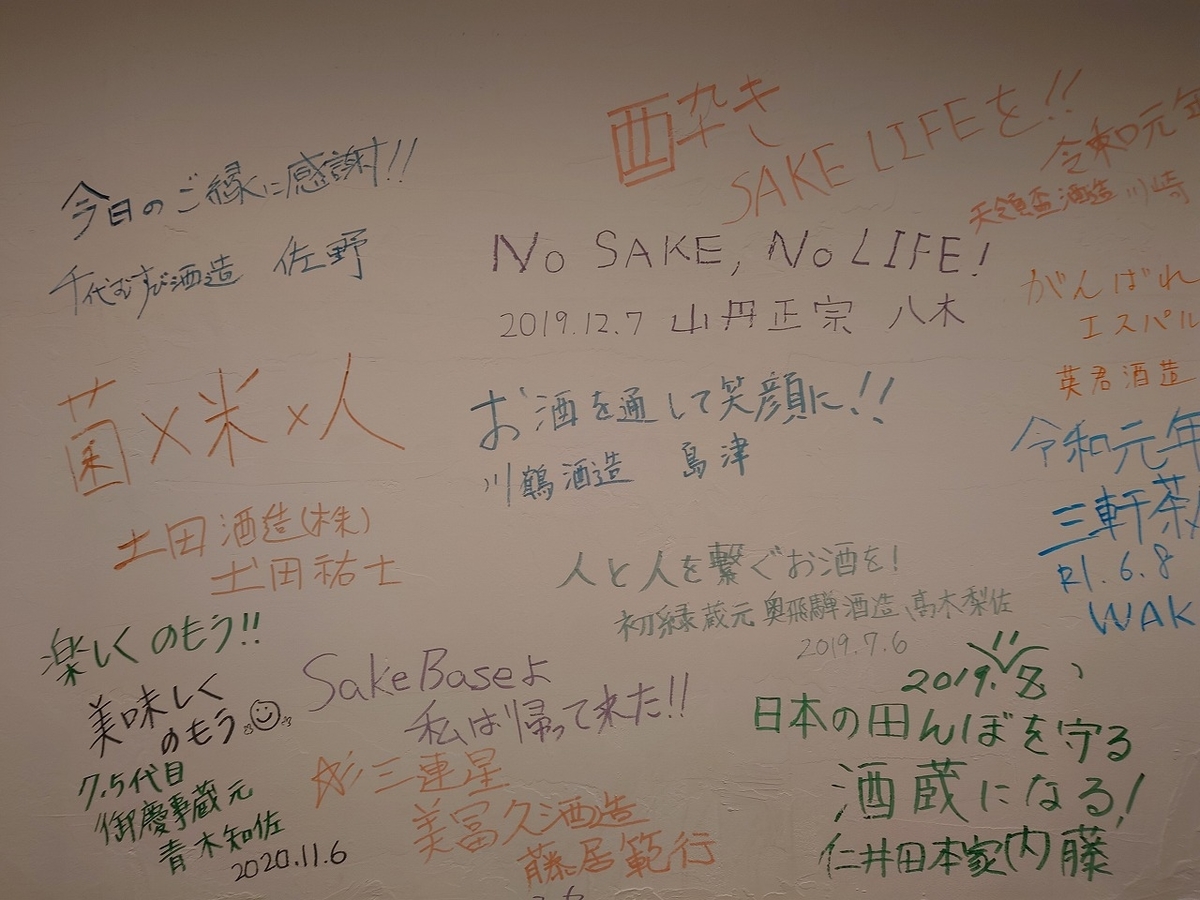 今日のご縁に感謝!!
千代むすび酒造 佐野
酔き
SAKE LIFEを!!
令和元年
天領盃酒造 川崎
No SAKE, No LIFE!
2019.12.7 山丹正宗 八木
がんばれ
エスパル
英君酒造
菌×米×人
土田酒造(株)
土田祐士
お酒を通して笑顔に!!
川鶴酒造 島津
令和元年
三軒茶
R1.6.8
WAK
人と人を繋ぐお酒を!
初緑蔵元 奥飛騨酒造、高木梨佐
2019.7.6
楽しくのもう!!
美味しく
のもう
7.5代目
御慶事蔵元
青木知佐
2020.11.6
SakeBaseよ
私は帰って来た!!
三連星
美冨久酒造
藤居範行
2019.
日本の田んぼを守る
酒蔵になる!
仁井田本家 内藤